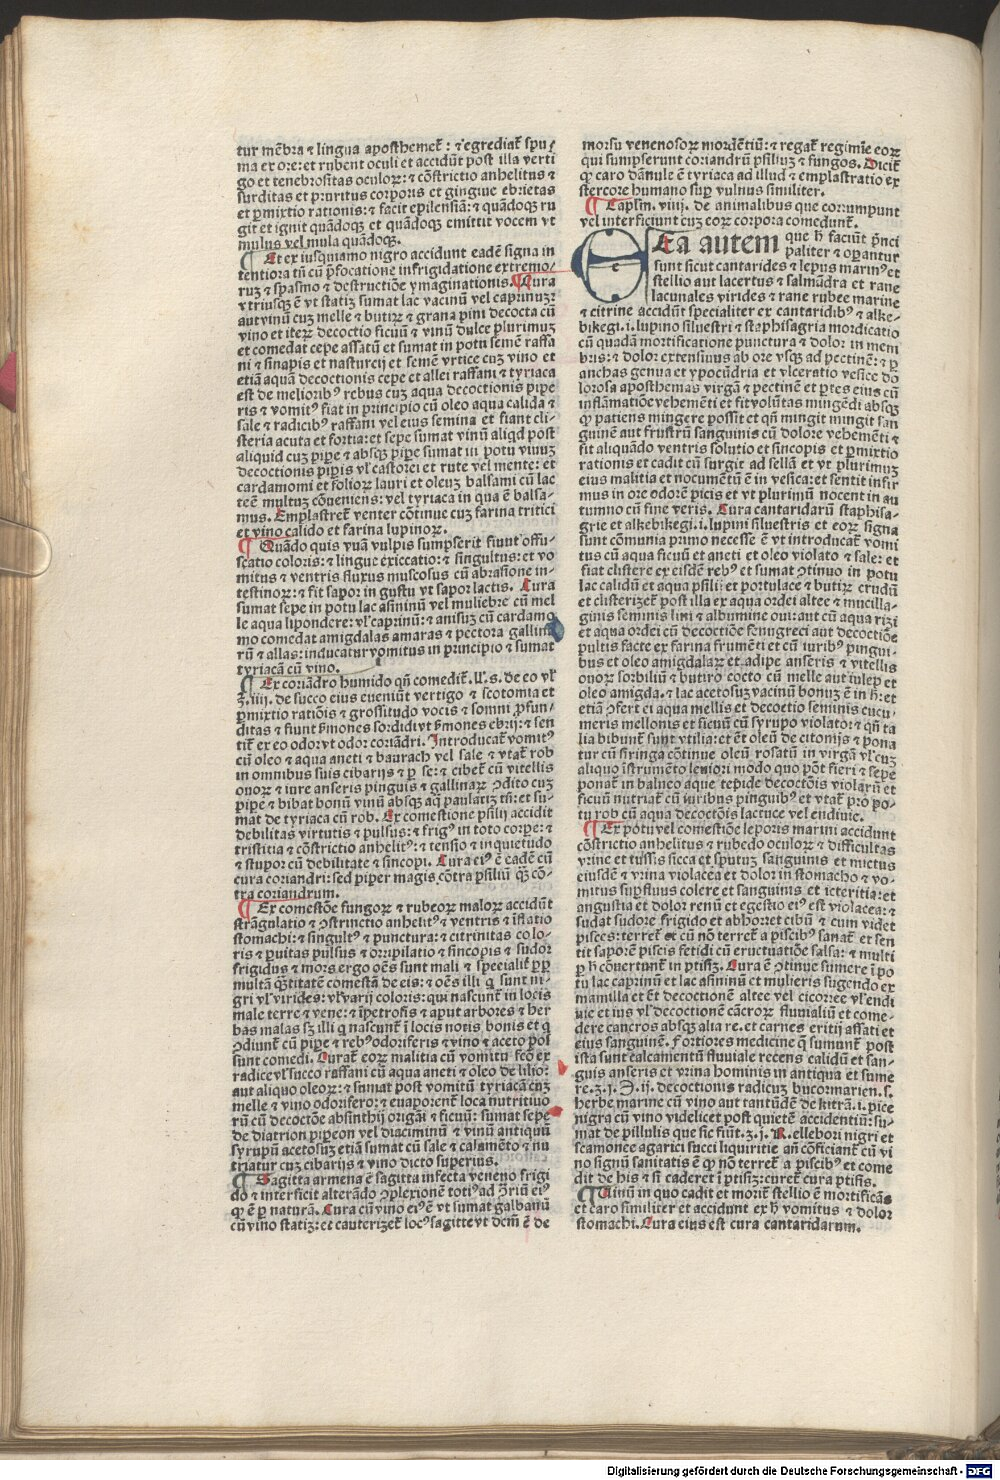 tur mēbra ⁊ lingua aposthemet᷑: ⁊ egrediat᷑ spu
ma ex ore: et rubent oculi et accidūt post illa verti
go et tenebrositas oculoꝝ: ⁊ cōstrictio anhelitus ⁊
surditas et pruritus corporis et gingiue ebrietas
et ꝑmixtio rationis: ⁊ facit epilensiā: ⁊ quādoqꝫ ru
git et ignit quādoqꝫ et quādoqꝫ emittit vocem vt
mulus vel mula quādoqꝫ.
¶ Et ex iusquiamo nigro accidunt eadē signa in
tentiora tn̄ cū p̄focatione infrigidatione extremo/
ruꝫ ⁊ spasmo ⁊ destructiōe ymaginationis. ¶ Cura
vtriusqꝫ ē vt statiꝫ sumat lac vacinū vel caprinuꝫ:
aut vinū cuꝫ melle ⁊ butiꝝ ⁊ grana pini decocta cū
vino et iteꝝ decoctio ficuū ⁊ vinū dulce plurimuꝫ
et comedat cepe assatū et sumat in potu semē raffa
ni ⁊ sinapis et nasturcij et semē vrtice cuꝫ vino et
etiā aquā decoctionis cepe et allei raffani ⁊ tyriaca
est de meliorib⁹ rebus cuꝫ aqua decoctionis pipe
ris ⁊ vomit⁹ fiat in principio cū oleo aqua calida ⁊
sale ⁊ radicib⁹ raffani vel eius semina et fiant cli-
steria acuta et fortia: et sepe sumat vinū aliqd post
aliquid cuꝫ pipe ⁊ absqꝫ pipe sumat in potu vinuꝫ
decoctionis pipis vl᷑ castorei et rute vel mente: et
cardamomi et folioꝝ lauri et oleuꝫ balsami cū lac
te ē multuꝫ cōueniens: vel tyriaca in qua ē balsa-
mus. Emplastret᷑ venter cōtinue cuꝫ farina tritici
et vino calido et farina lupinoꝝ.
¶ Quādo quis vuā vulpis sumpserit fiunt offu-
scatio coloris: ⁊ lingue exiccatio: ⁊ singultus: et vo
mitus ⁊ ventris fluxus muscosus cū abrasione in-
testinoꝝ: ⁊ fit sapor in gustu vt sapor lactis. Cura
sumat sepe in potu lac asininū vel muliebre cū mel
le aqua lipondere: vl᷑ caprinū: ⁊ anisuꝫ cū cardamo
mo comedat amigdalas amaras ⁊ pectora gallina
rū ⁊ allas: inducatur vomitus in principio ⁊ sumat
tyriacā cū vino.
¶ Ex coriādro humido qn̄ comedit᷑. ll̓. s. de eo vl᷑
ʒ. iiij. de succo eius eueniūt vertigo ⁊ scotomia et
ꝑmixtio ratiōis ⁊ grossitudo vocis ⁊ somni ꝓfun-
ditas ⁊ fiunt s̄mones sordidi vt s̄mones ebrij: ⁊ sen
tit᷑ ex eo odor vt odor coriādri. Introducat᷑ vomit⁹
cū oleo ⁊ aqua aneti ⁊ baurach vel sale ⁊ vtat᷑ rob
in omnibus suis cibarijs ⁊ ꝑ se: ⁊ cibet᷑ cū vitellis
ouoꝝ ⁊ iure anseris pinguis ⁊ gallinaꝝ ꝯdito cuꝫ
pipe ⁊ bibat bonū vinū absqꝫ aq̄ paulatiꝫ tn̄: et su-
mat de tyriaca cū rob. Ex comestione psilij accidit
debilitas virtutis ⁊ pulsus: ⁊ frig⁹ in toto corpe: ⁊
tristitia ⁊ cōstrictio anhelit⁹: ⁊ tensio ⁊ inquietudo
⁊ stupor cū debilitate ⁊ sincopi. Cura ei⁹ ē eadē cū
cura coriandri: sed piper magis cōtra psiliū qꝫ cō-
tra coriandrum.
¶ Ex comestōe fungoꝝ ⁊ rubeoꝝ maloꝝ accidūt
strāgulatio ⁊ ꝯstrinctio anhelit⁹ ⁊ ventris ⁊ īflatio
stomachi: ⁊ singult⁹ ⁊ punctura: ⁊ citrinitas colo-
ris ⁊ puitas pulsus ⁊ orripilatio ⁊ sincopis ⁊ sudor
frigidus ⁊ mors ergo oēs sunt mali ⁊ specialit᷑ ꝓp
multā q̄titatē comestā de eis: ⁊ oēs illi q̄ sunt ni-
gri vl᷑ virides: vl᷑ varij coloris: qui nascunt᷑ in locis
male terre ⁊ vene: ⁊ ī petrofis ⁊ aput arbores ⁊ her
bas malas sꝫ illi q̄ nascunt᷑ ī locis notis bonis et q̄
ꝯdiunt᷑ cū pipe ⁊ reb⁹ odoriferis ⁊ vino ⁊ aceto p̄t
sunt comedi. Curat᷑ eoꝝ malitia cū vomitu fcō ex
radice vl᷑ succo raffani cū aqua aneti ⁊ oleo de lilio:
aut aliquo oleoꝝ: ⁊ sumat post vomitū tyriacā cuꝫ
melle ⁊ vino odorifero: ⁊ euaporent᷑ loca nutritiuo
rū cū decoctōe absinthij origāi ⁊ ficuū: sumat sepe
de diatrion pipeon vel diaciminū ⁊ vinū antiquū
syrupū acetosuꝫ etiā sumat cū sale ⁊ calamēto ⁊ nu
triatur cuꝫ cibarijs ⁊ vino dicto superius.
¶ Sagitta armena ē sagitta infecta veneno frigi
do ⁊ interficit alterādo ꝯplexionē toti⁹ ad ꝯriū ei⁹
ꝙ ē ꝑ naturā. Cura cū vino ei⁹ ē vt sumat galbanū
cū vino statiꝫ: et cauterizet᷑ loc⁹ sagitte vt dcm̄ ē de
morsu venenosoꝝ mordētiū: ⁊ regat᷑ regimīe eoꝝ
qui sumpserunt coriandrū psiliuꝫ ⁊ fungos. Dicit᷑
ꝙ caro dānule ē tyriaca ad illud ⁊ emplastratio ex
stercore humano suꝑ vulnus similiter.
¶ Caplm̄. viiij. de animalibus que corrumpunt
vel interficiunt cuꝫ eoꝝ corpora comedunt᷑.
Ea autem que h̄ faciūt p̄nci
paliter ⁊ oꝑantur
sunt sicut cantarides ⁊ lepus marin⁹ et
stellio aut lacertus ⁊ salmādra et rane
lacunales virides ⁊ rane rubee marine
⁊ citrine accidūt specialiter ex cantaridib⁹ ⁊ alke-
bikegi. i. lupino siluestri ⁊ staphisagria mordicatio
cū quadā mortificatione punctura ⁊ dolor in mem
bris: ⁊ dolor extensiuus ab ore vsqꝫ ad pectinē: ⁊ ꝑ
anchas genua et ypocūdria et vlceratio vesice do
lorosa aposthemas virgā ⁊ pectinē et ꝑtes eius cū
inflāmatiōe vehemēti et fit volūtas mingēdi absqꝫ
ꝙ patiens mingere possit et qn̄ mingit mingit san
guinē aut frustrū sanguinis cū dolore vehemēti ⁊
fit aliquādo ventris solutio et sincopis et ꝑmixtio
rationis et cadit cū surgit ad sellā et vt plurimuꝫ
eius malitia et nocumētū ē in vesica: et sentit infir
mus in ore odorē picis et vt plurimū nocent in au
tumno cū sine veris. Cura cantaridarū staphisa-
grie et alkebikegi. i. lupini siluestris et eoꝝ signa
sunt cōmunia primo necesse ē vt introducat᷑ vomi
tus cū aqua ficuū et aneti et oleo violato ⁊ sale: et
fiat clistere ex eisdē reb⁹ et sumat ꝯtinuo in potu
lac calidū et aqua psilij et portulace ⁊ butiꝝ crudū
et clisterizet᷑ post illa ex aqua ordei altee ⁊ mucilla-
ginis seminis lini ⁊ albumine oui: aut cū aqua rizi
et aqua ordei cū decoctiōe fenugreci aut decoctiōe
pultis facte ex farina frumēti et cū iurib⁹ pingui-
bus et oleo amigdalaꝝ et adipe anseris ⁊ vitellis
ouoꝝ sorbiliū ⁊ butiro cocto cū melle aut iulep et
oleo amigda. ⁊ lac acetosuꝫ vacinū bonuꝫ ē in h̄: et
etiā ꝯfert ei aqua mellis et decoctio seminis cucu-
meris mellonis et ficuū cū syrupo violatoꝝ ⁊ qn̄ ta
lia bibunt᷑ sunt vtilia: et ēt oleū de citonijs ⁊ pona
tur cū siringa cōtinue oleū rosatū in virgā vl᷑ cuꝫ
aliquo īstrumēto leniori modo quo pōt fieri ⁊ sepe
ponat᷑ in balneo aque tepide decoctōis violarū et
ficuū nutriat᷑ cū iuribus pinguib⁹ et vtat᷑ pro po-
tu rob cū aqua decoctōis lactuce vel endiuie.
¶ Ex potu vel comestiōe leporis marini accidunt
cōstrictio anhelitus ⁊ rubedo oculoꝝ ⁊ difficultas
vrine et tussis sicca et sputuꝫ sanguinis et mictus
eiusdē ⁊ vrina violacea et dolor in stomacho ⁊ vo-
mitus suꝑfluus colere et sanguinis et icteritia: et
angustia et dolor renū et egestio ei⁹ est violacea: ⁊
sudat sudore frigido et abhorret cibū ⁊ cum videt
pisces: terret᷑ et cū nō terret᷑ a piscib⁹ sanat᷑ et sen
tit saporē piscis fetidi cū eructuatiōe salsa: ⁊ multi
ꝑ h̄ cōuertunt᷑ in ptisiꝫ. Cura ē ꝯtinue sumere ī po
tu lac caprinū et lac asininū et mulieris sugendo ex
mamilla et ēt decoctionē altee vel cicoree vl᷑ endi
uie et ius vl᷑ decoctionē cācroꝝ fluuialiū et come-
dere cancros absqꝫ alia re. et carnes eritij assati et
eius sanguinē. Fortiores medicine q̄ sumunt᷑ post
ista sunt calcamentū fluuiale recens calidū et san-
guis anseris et vrina hominis in antiqua et sume
re. ʒ. j. Ə. ij. decoctionis radicuꝫ bucormarien. s.
herbe marine cū vino aut tantūdē de kitrā. i. pice
nigra cū vino videlicet post quietē accidentiū: su-
mat de pillulis que sic fiūt. ʒ. j. R. ellebori nigri et
scamonee agarici succi liquiritie an̄ cōficiant᷑ cū vi
no signū sanitatis ē ꝙ nō terret᷑ a piscib⁹ et come
dit de his ⁊ si caderet ī ptisiꝫ: curet᷑ cura ptisis.
¶ Vinū in quo cadit et morit᷑ stellio ē mortificās
et caro similiter et accidunt ex h̄ vomitus ⁊ dolor
stomachi. Cura eius est cura cantaridarum.
Digitalisierung gefördert durch die Deutsche Forschungsgemeinschaft - DFG